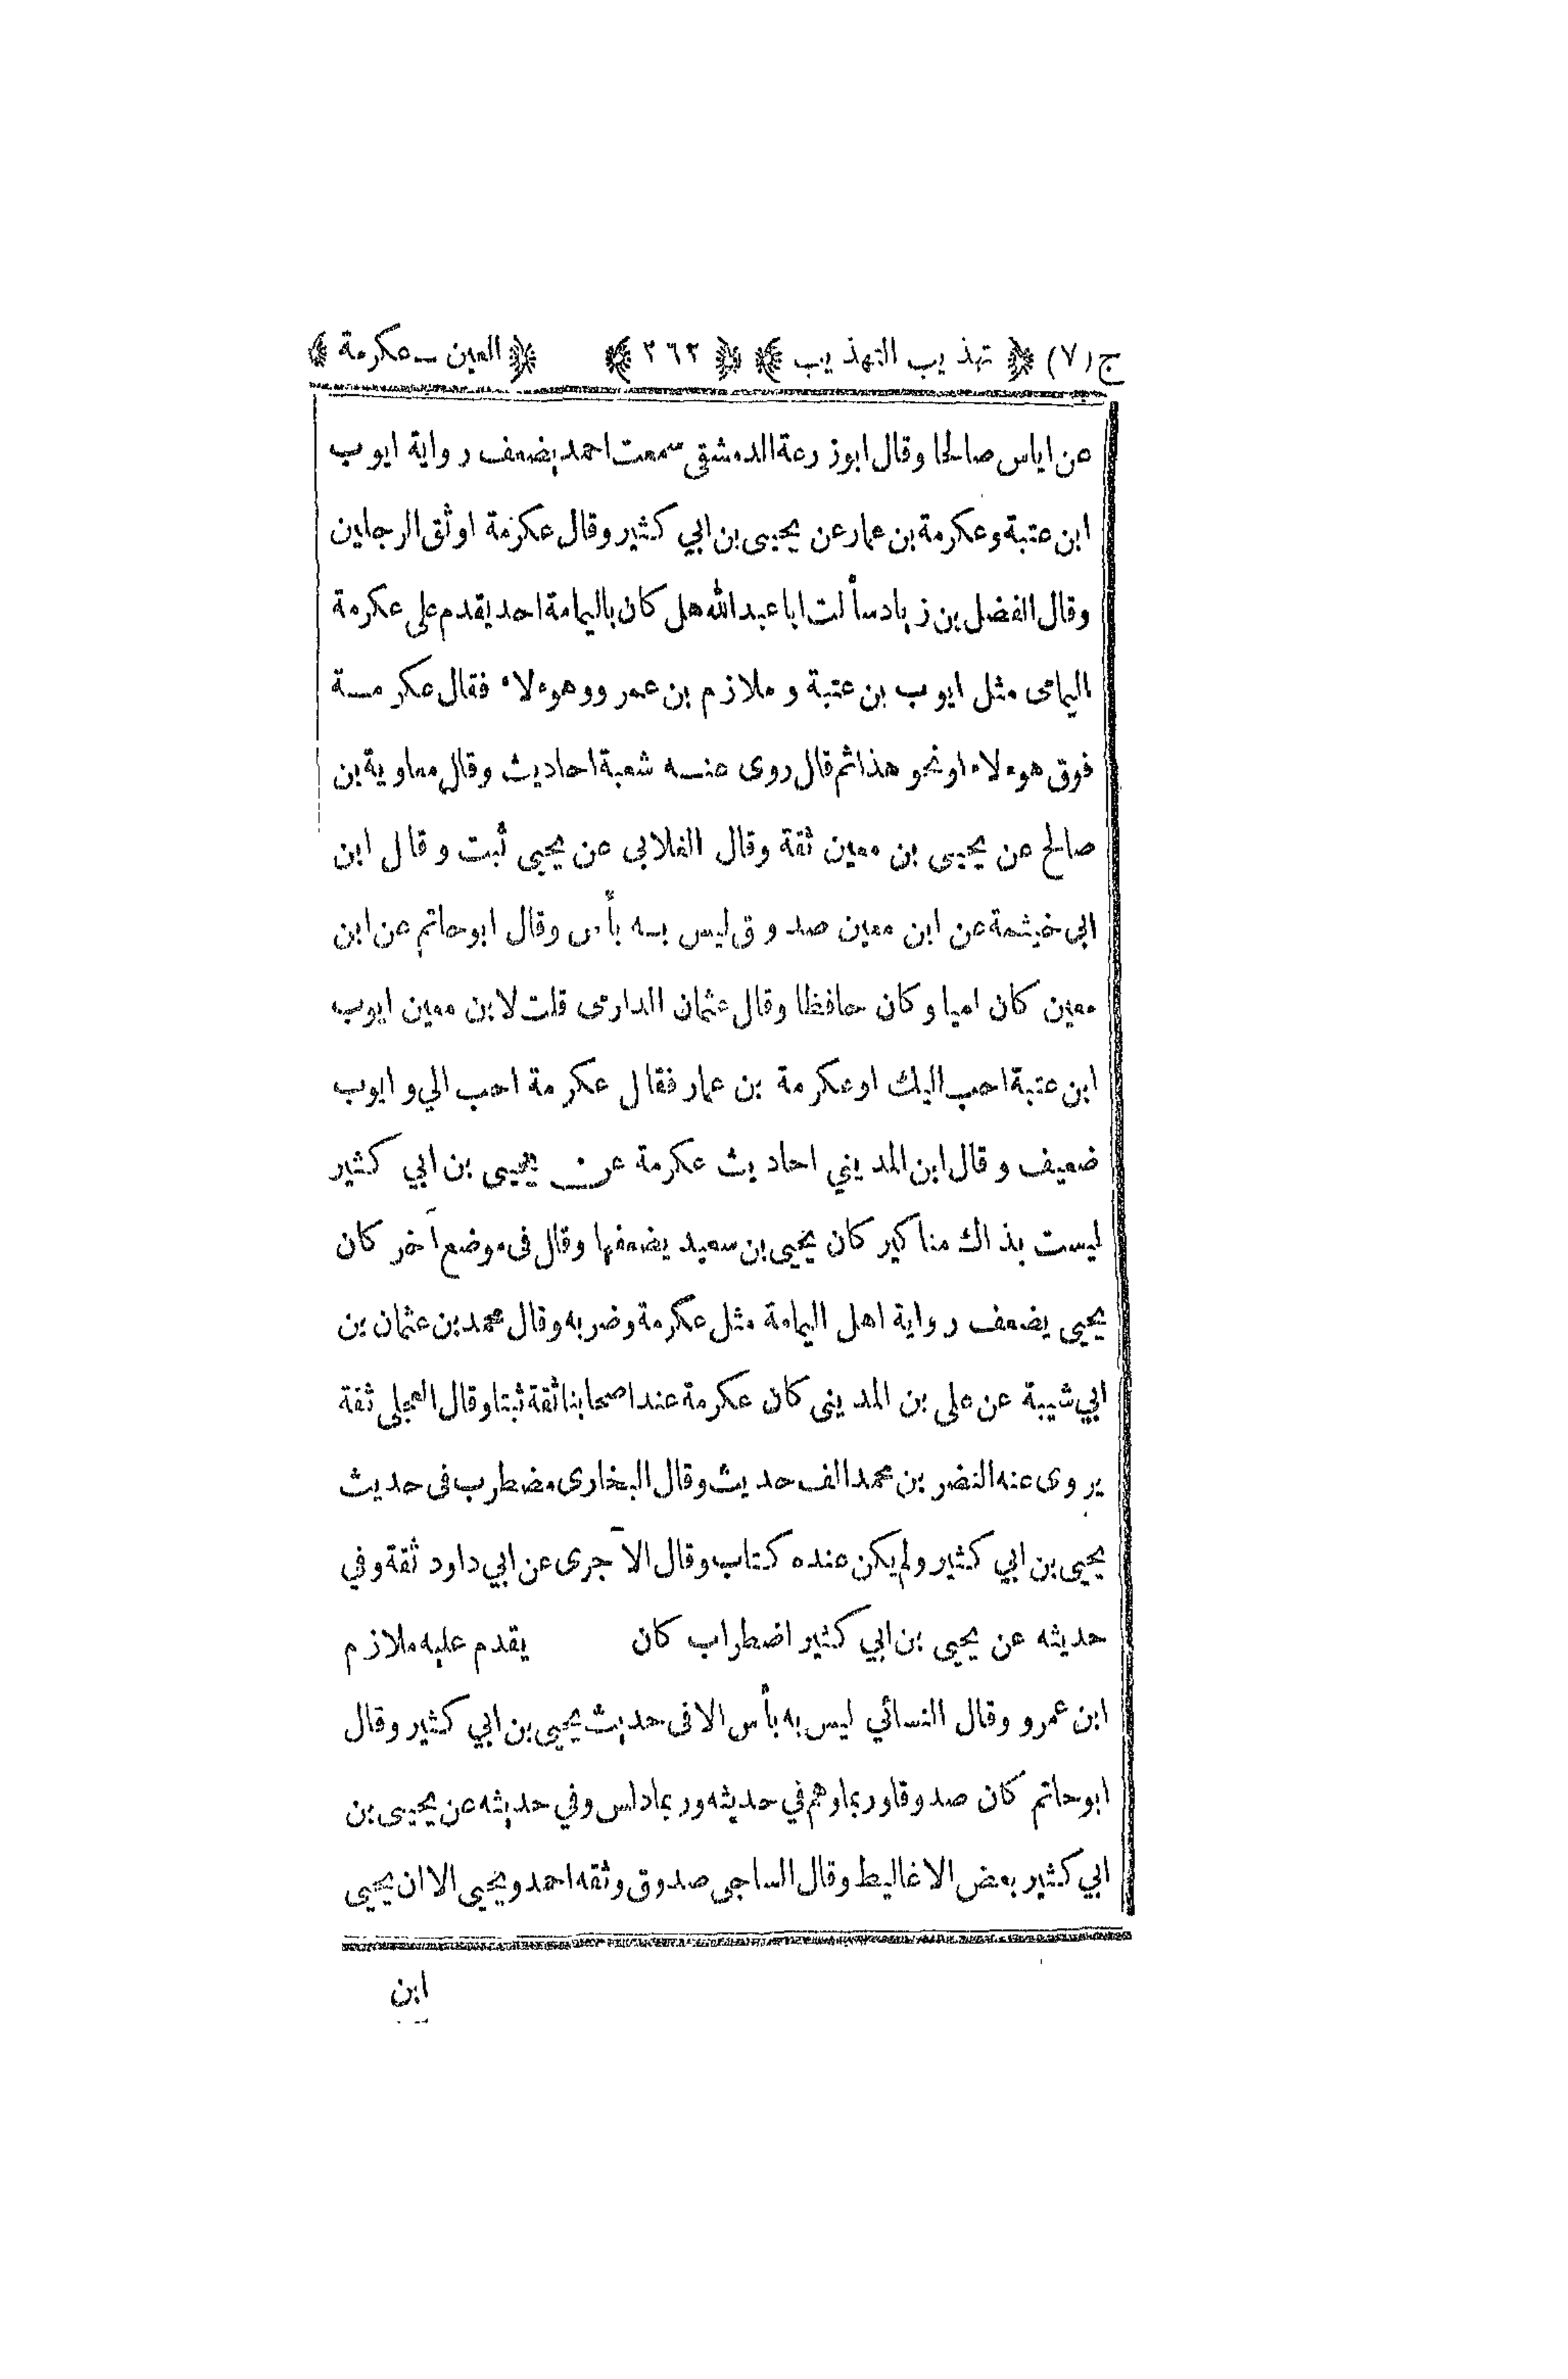 ج(٧) ﴿ تهذيب التهذيب ﴾ ﴿ ٢٦٢ ﴾ ﴿ العين ــ عكرمة ﴾
عن اياس صالحا وقال ابوزرعة الدمشقي سمعت احمد يضعف رواية ايوب
ابن عتبة وعكرمة بن عمار عن يحيى بن ابي كثير وقال عكرمة اوثق الرجلين
وقال الفضل بن زياد سألت ابا عبد الله هل كان باليمامة احد يقدم على عكرمة
اليمامى مثل ايوب بن عتبة و ملازم بن عمرو وهوءلاء فقال عكرمة
فوق هوءلاء اونحو هذا ثم قال روى عنه شعبة احاديث وقال معاوية بن
صالح عن يحيى بن معين ثقة وقال الغلابى عن يحيى ثبت وقال ابن
ابى خيثمة عن ابن معين صدوق ليس به بأس وقال ابوحاتم عن ابن
معين كان اميا وكان حافظا وقال عثمان الدارمى قلت لابن معين ايوب
ابن عتبة احب اليك اوعكرمة بن عمار فقال عكرمة احب الي و ايوب
ضعيف وقال ابن المديني احاديث عكرمة عن يحيى بن ابي كثير
ليست بذاك مناكير كان يحيى بن سعيد يضعفها وقال فى موضع آخر كان
يحيى يضعف رواية اهل اليمامة مثل عكرمة وضربه وقال محمد بن عثمان بن
ابي شيبة عن على بن المدينى كان عكرمة عند اصحابنا ثقة ثبتا وقال العجلى ثقة
يروى عنه النضر بن محمد الف حديث وقال البخارى مضطرب فى حديث
يحيى بن ابي كثير ولم يكن عنده كتاب وقال الآجرى عن ابي داود ثقة وفي
حديثه عن يحيى بن ابي كثير اضطراب كان يقدم عليه ملازم
ابن عمرو وقال النسائي ليس به بأس الا فى حديث يحيى بن ابي كثير وقال
ابوحاتم كان صدوقا وربما وهم في حديثه وربما دلس وفي حديثه عن يحيى بن
ابي كثير بعض الاغاليط وقال الساجى صدوق وثقه احمد ويحيى الا ان يحيى
ابن